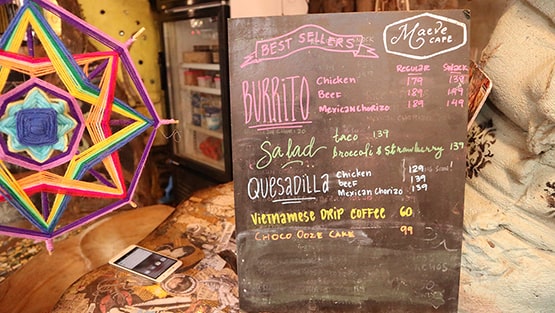 BEST SELLERS
Maeve
CAFE
REGULAR SNACK
BURRITO Chicken 179 139
Beef 189 149
Mexican Chorizo 189 149
Salad taco 139
broccoli & Strawberry 139
QUESADILLA Chicken 129
beef 139
Mexican Chorizo 139
VIETNAMESE DRIP COFFEE 60
CHOCO OOZE CAKE 99